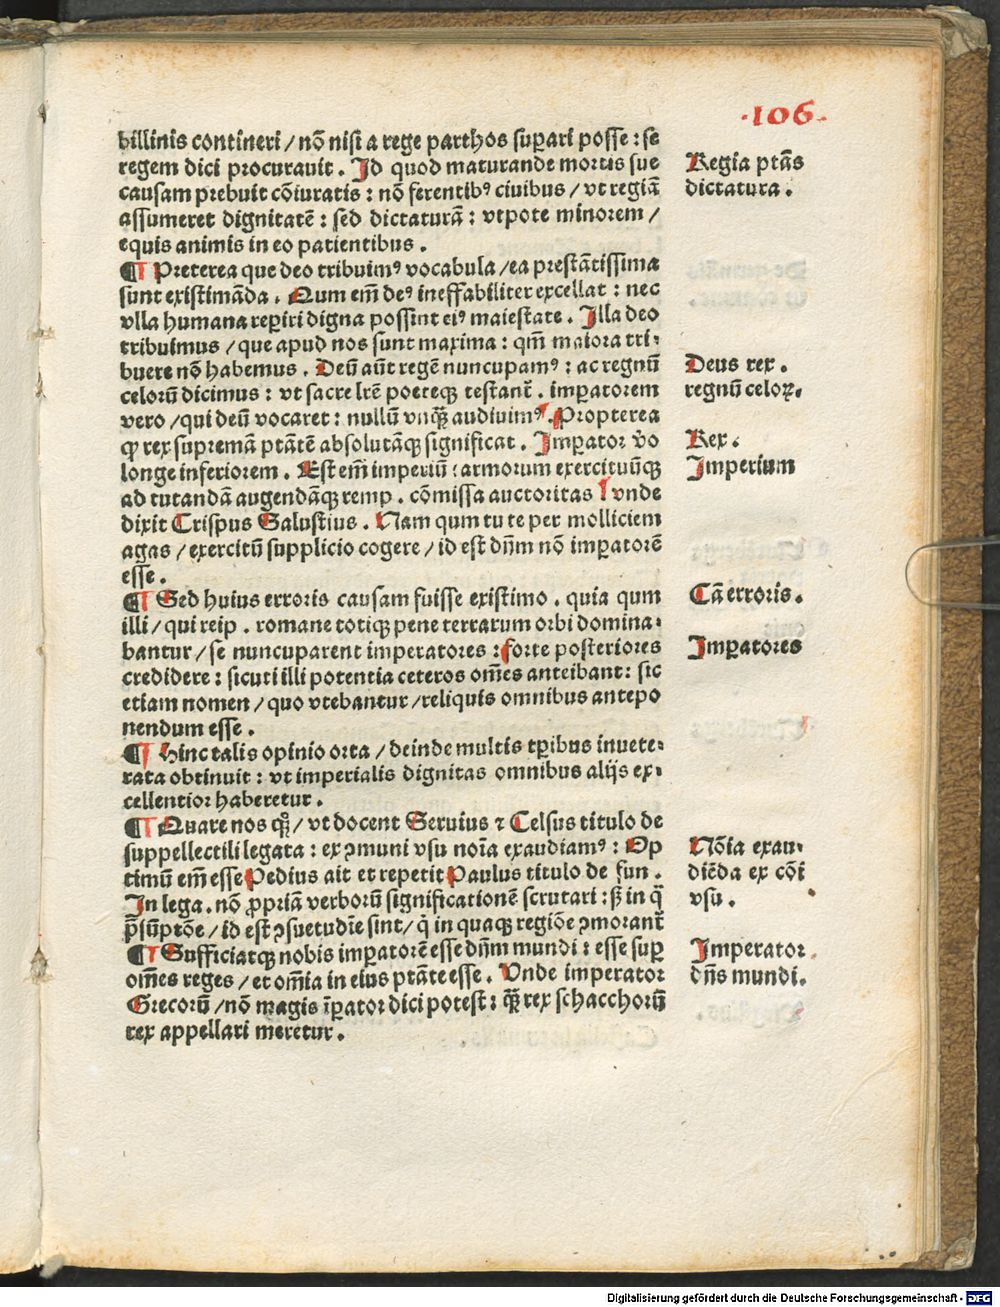 ·106·
billinis contineri / nō nisi a rege parthos suꝑari posse : se
regem dici procurauit . Id quod maturande mortis sue
causam prebuit cōiuratis : nō ferentibꝰ ciuibus / vt regiā
assumeret dignitatē : sed dictaturā : vtpote minorem /
equis animis in eo patientibus .
¶ Preterea que deo tribuimꝰ vocabula / ea prestātissima
sunt existimāda . Qum em̄ deꝰ ineffabiliter excellat : nec
vlla humana reꝑiri digna possint eiꝰ maiestate . Illa deo
tribuimus / que apud nos sunt maxima : qm̄ maiora tri-
buere nō habemus . Deū aūt regē nuncupamꝰ : ac regnū
celorū dicimus : vt sacre lr̄e poeteqꝫ testant᷑ . imperatorem
vero / qui deū vocaret : nullū vnqꝫ̄ audiuimꝰ . Propterea
ꝙ rex supremā ptātē absolutāqꝫ significat . Imperator v̄o
longe inferiorem . Est em̄ imperiū : armorum exercituūqꝫ
ad tutandā augendāqꝫ remp . cōmissa auctoritas vnde
dixit Crispus Salustius . Nam qum tu te per molliciem
agas / exercitū supplicio cogere / id est dn̄m nō imꝑatorē
esse .
¶ Sed huius erroris causam fuisse existimo . quia qum
illi / qui reip . romane totiqꝫ pene terrarum orbi domina-
bantur / se nuncuparent imperatores : forte posteriores
credidere : sicuti illi potentia ceteros om̄es anteibant : sic
etiam nomen / quo vtebantur / reliquis omnibus antepo
nendum esse .
¶ Hinc talis opinio orta / deinde multis tꝑibus inuete-
rata obtinuit : vt imperialis dignitas omnibus alijs ex-
cellentior haberetur .
¶ Quare nos qꝫ̄ / vt docent Seruius ⁊ Celsus titulo de
suppellectili legata : ex ꝯmuni vsu noīa exaudiamꝰ : Op
timū em̄ esse Pedius ait et repetit Paulus titulo de fun .
In lega . nō ꝓpriā verborū significationē scrutari : sꝫ in q̄
p̄sūptōe / id est ꝯsuetudīe sint / q̇ in quaqꝫ regiōe ꝯmorant᷑
¶ Sufficiatqꝫ nobis imꝑatorē esse dn̄m mundi : esse suꝑ
om̄es reges / et om̄ia in eius ptāte esse . Vnde imperator
Grecorū / nō magis īꝑator dici potest : qꝫ̄ rex schacchorū
rex appellari meretur .
Regia ptās
dictatura .
Deus rex .
regnū celoꝝ.
Rex .
Imperium
Cā erroris .
Imꝑatores
Nōīa exau-
diēda ex cōi
vsu .
Imperator
dn̄s mundi .
Digitalisierung gefördert durch die Deutsche Forschungsgemeinschaft - DFG